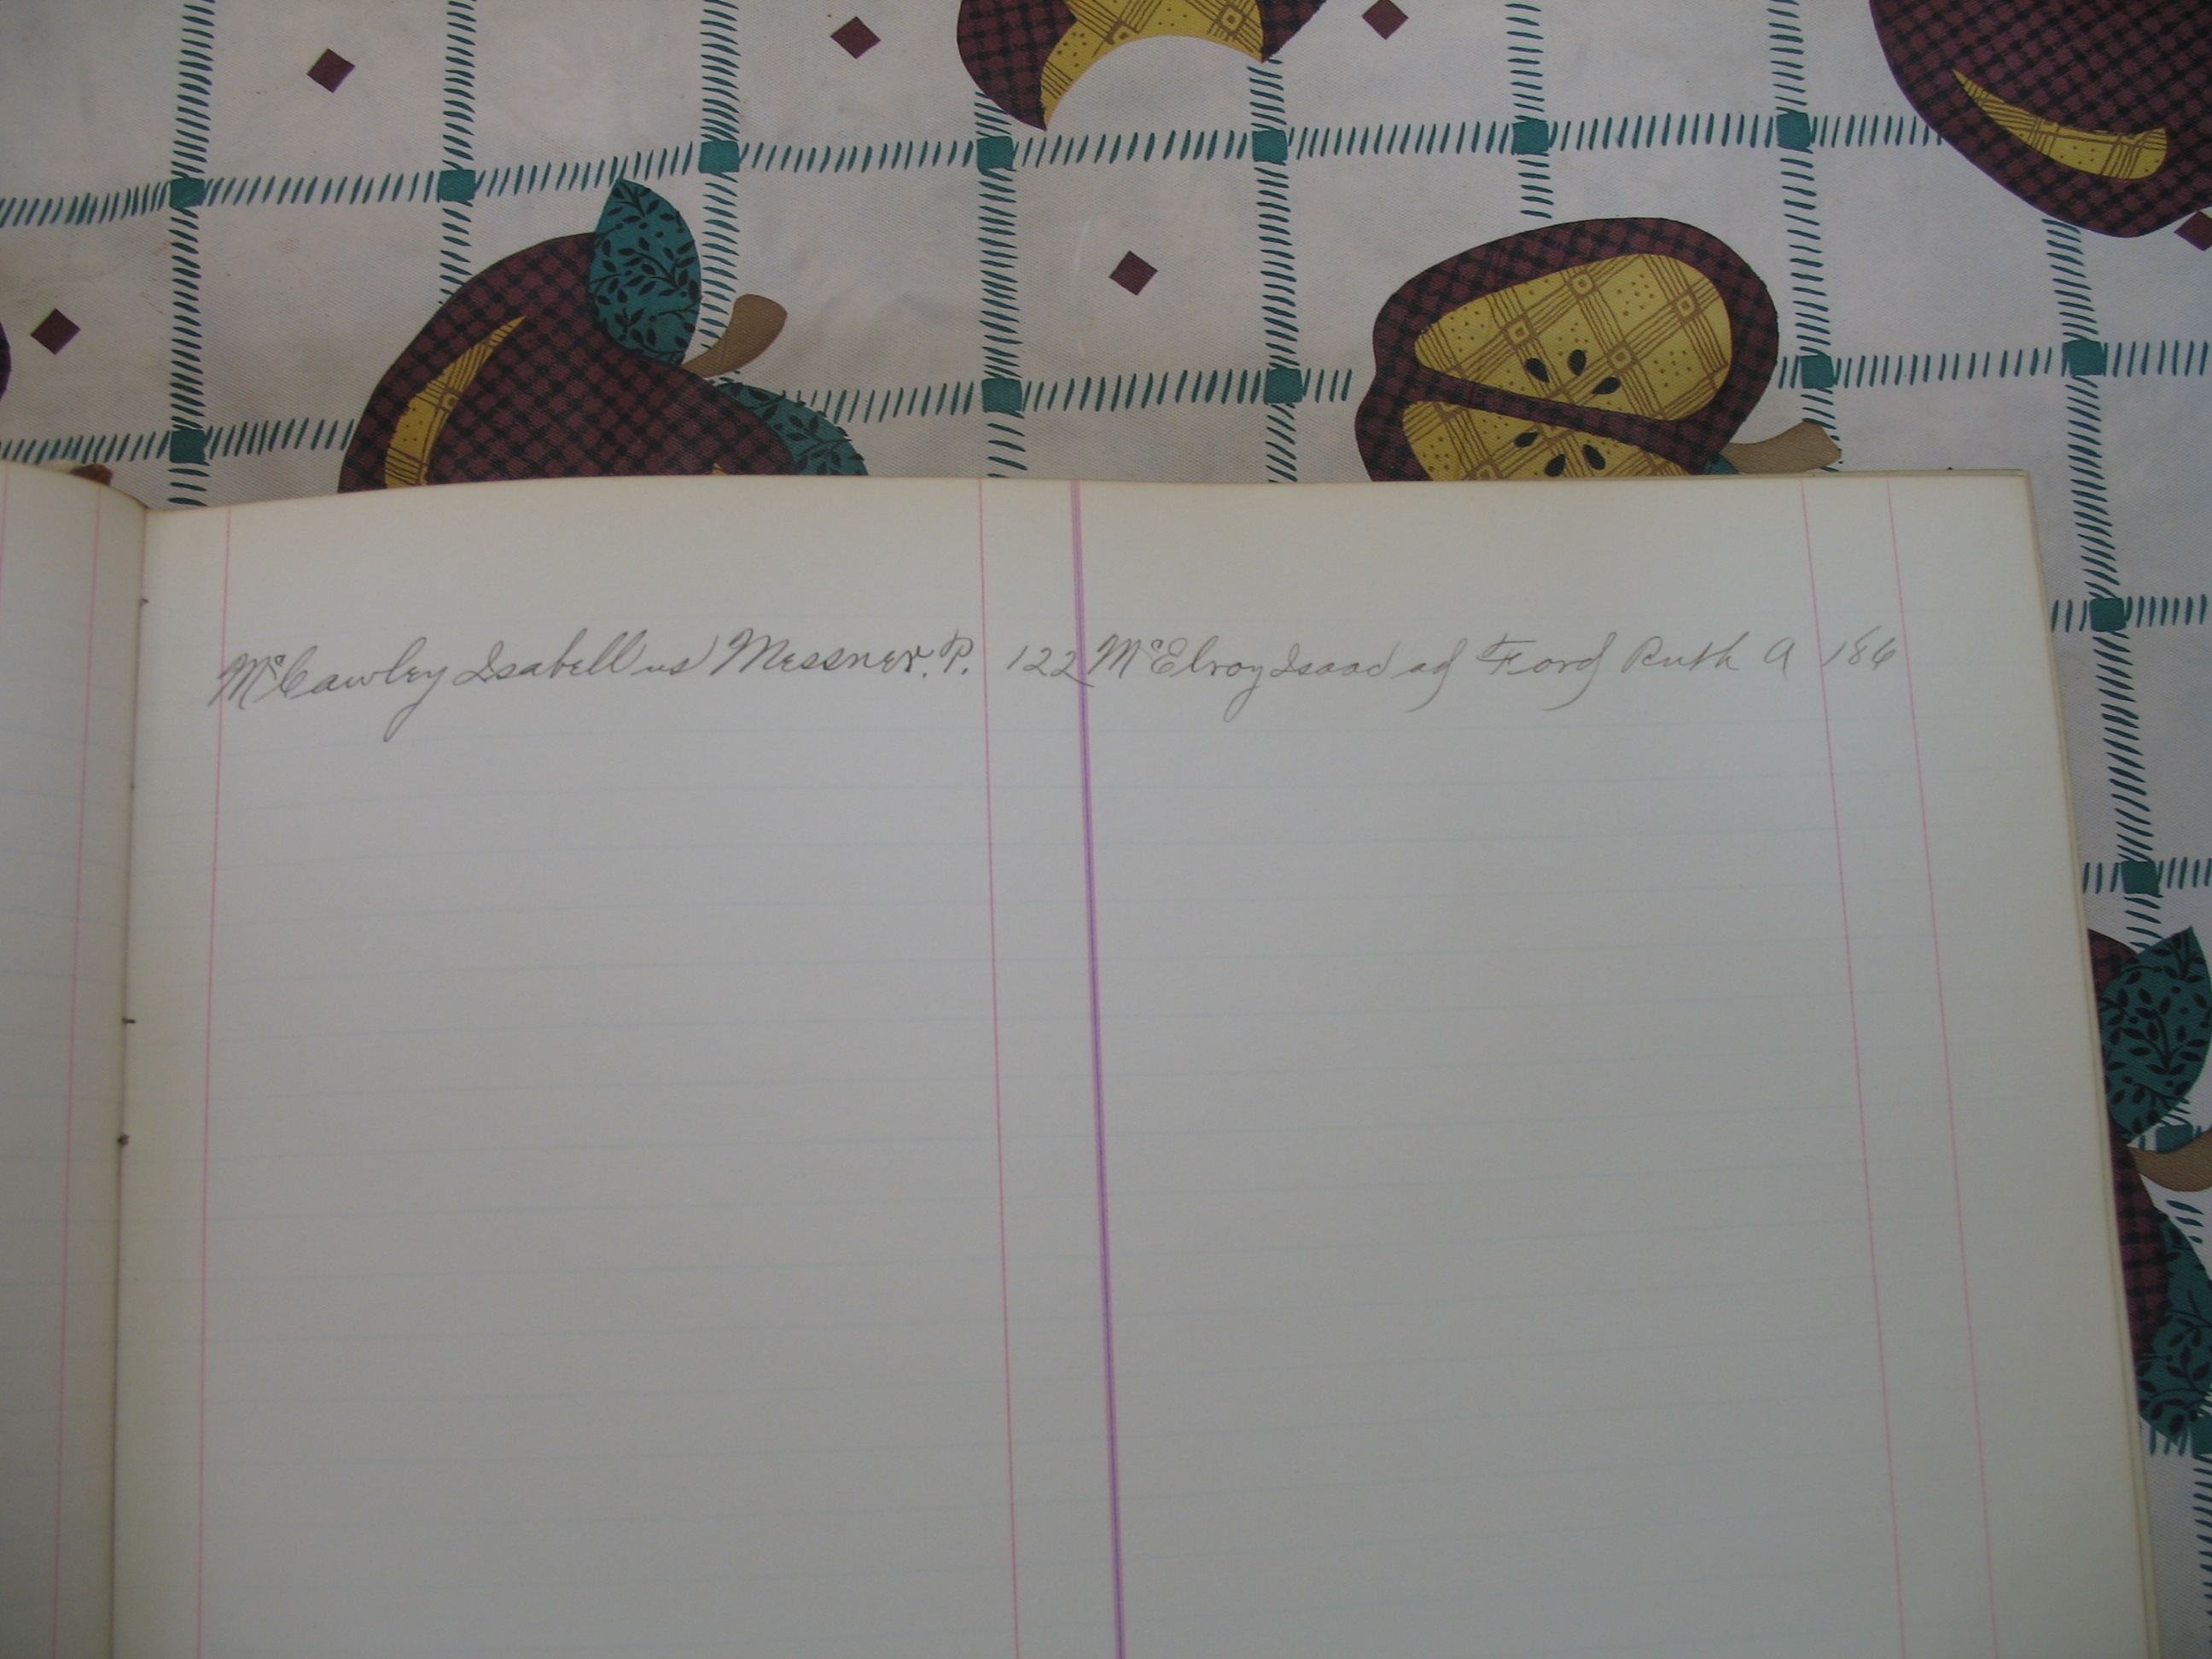 McCawley Isabell vs Messner. P. 122
McElroy Isaac ad Ford Ruth A 186